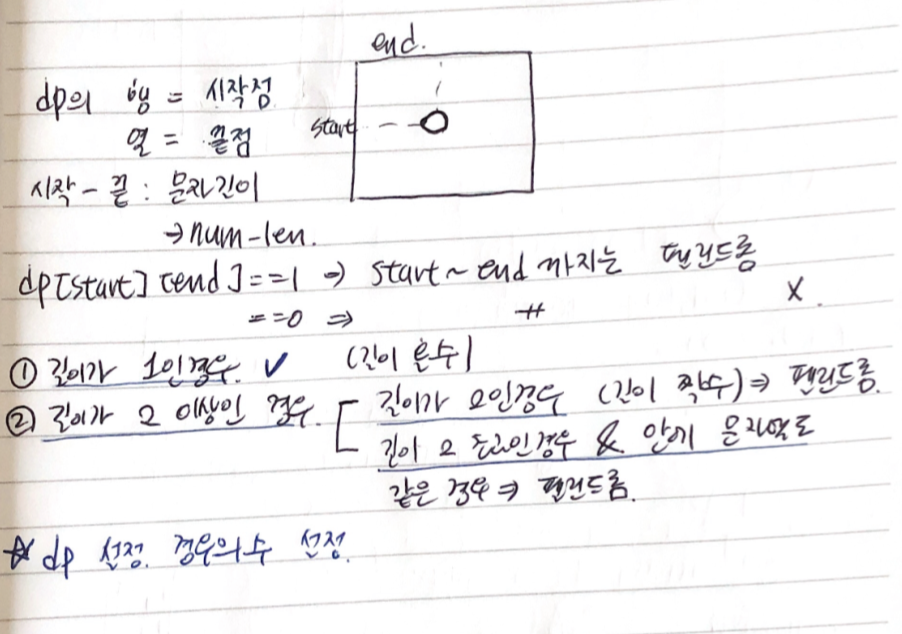 end.
dp의 행 = 시작점
열 = 끝점
start
시작 - 끝 : 문자길이
→ num-len.
dp[start][end]==1 ⇒ start ~ end 까지는 팰린드롬
==0 ⇒ 〃 X.
① 길이가 1인경우. ✓ (길이 홀수)
② 길이가 2 이상인 경우. [ 길이가 2인경우 (길이 짝수) ⇒ 팰린드롬.
길이 2 초과인경우 & 안에 문자열도
같은 경우 ⇒ 팰린드롬.
☆ dp 설정. 경우의수 설정.